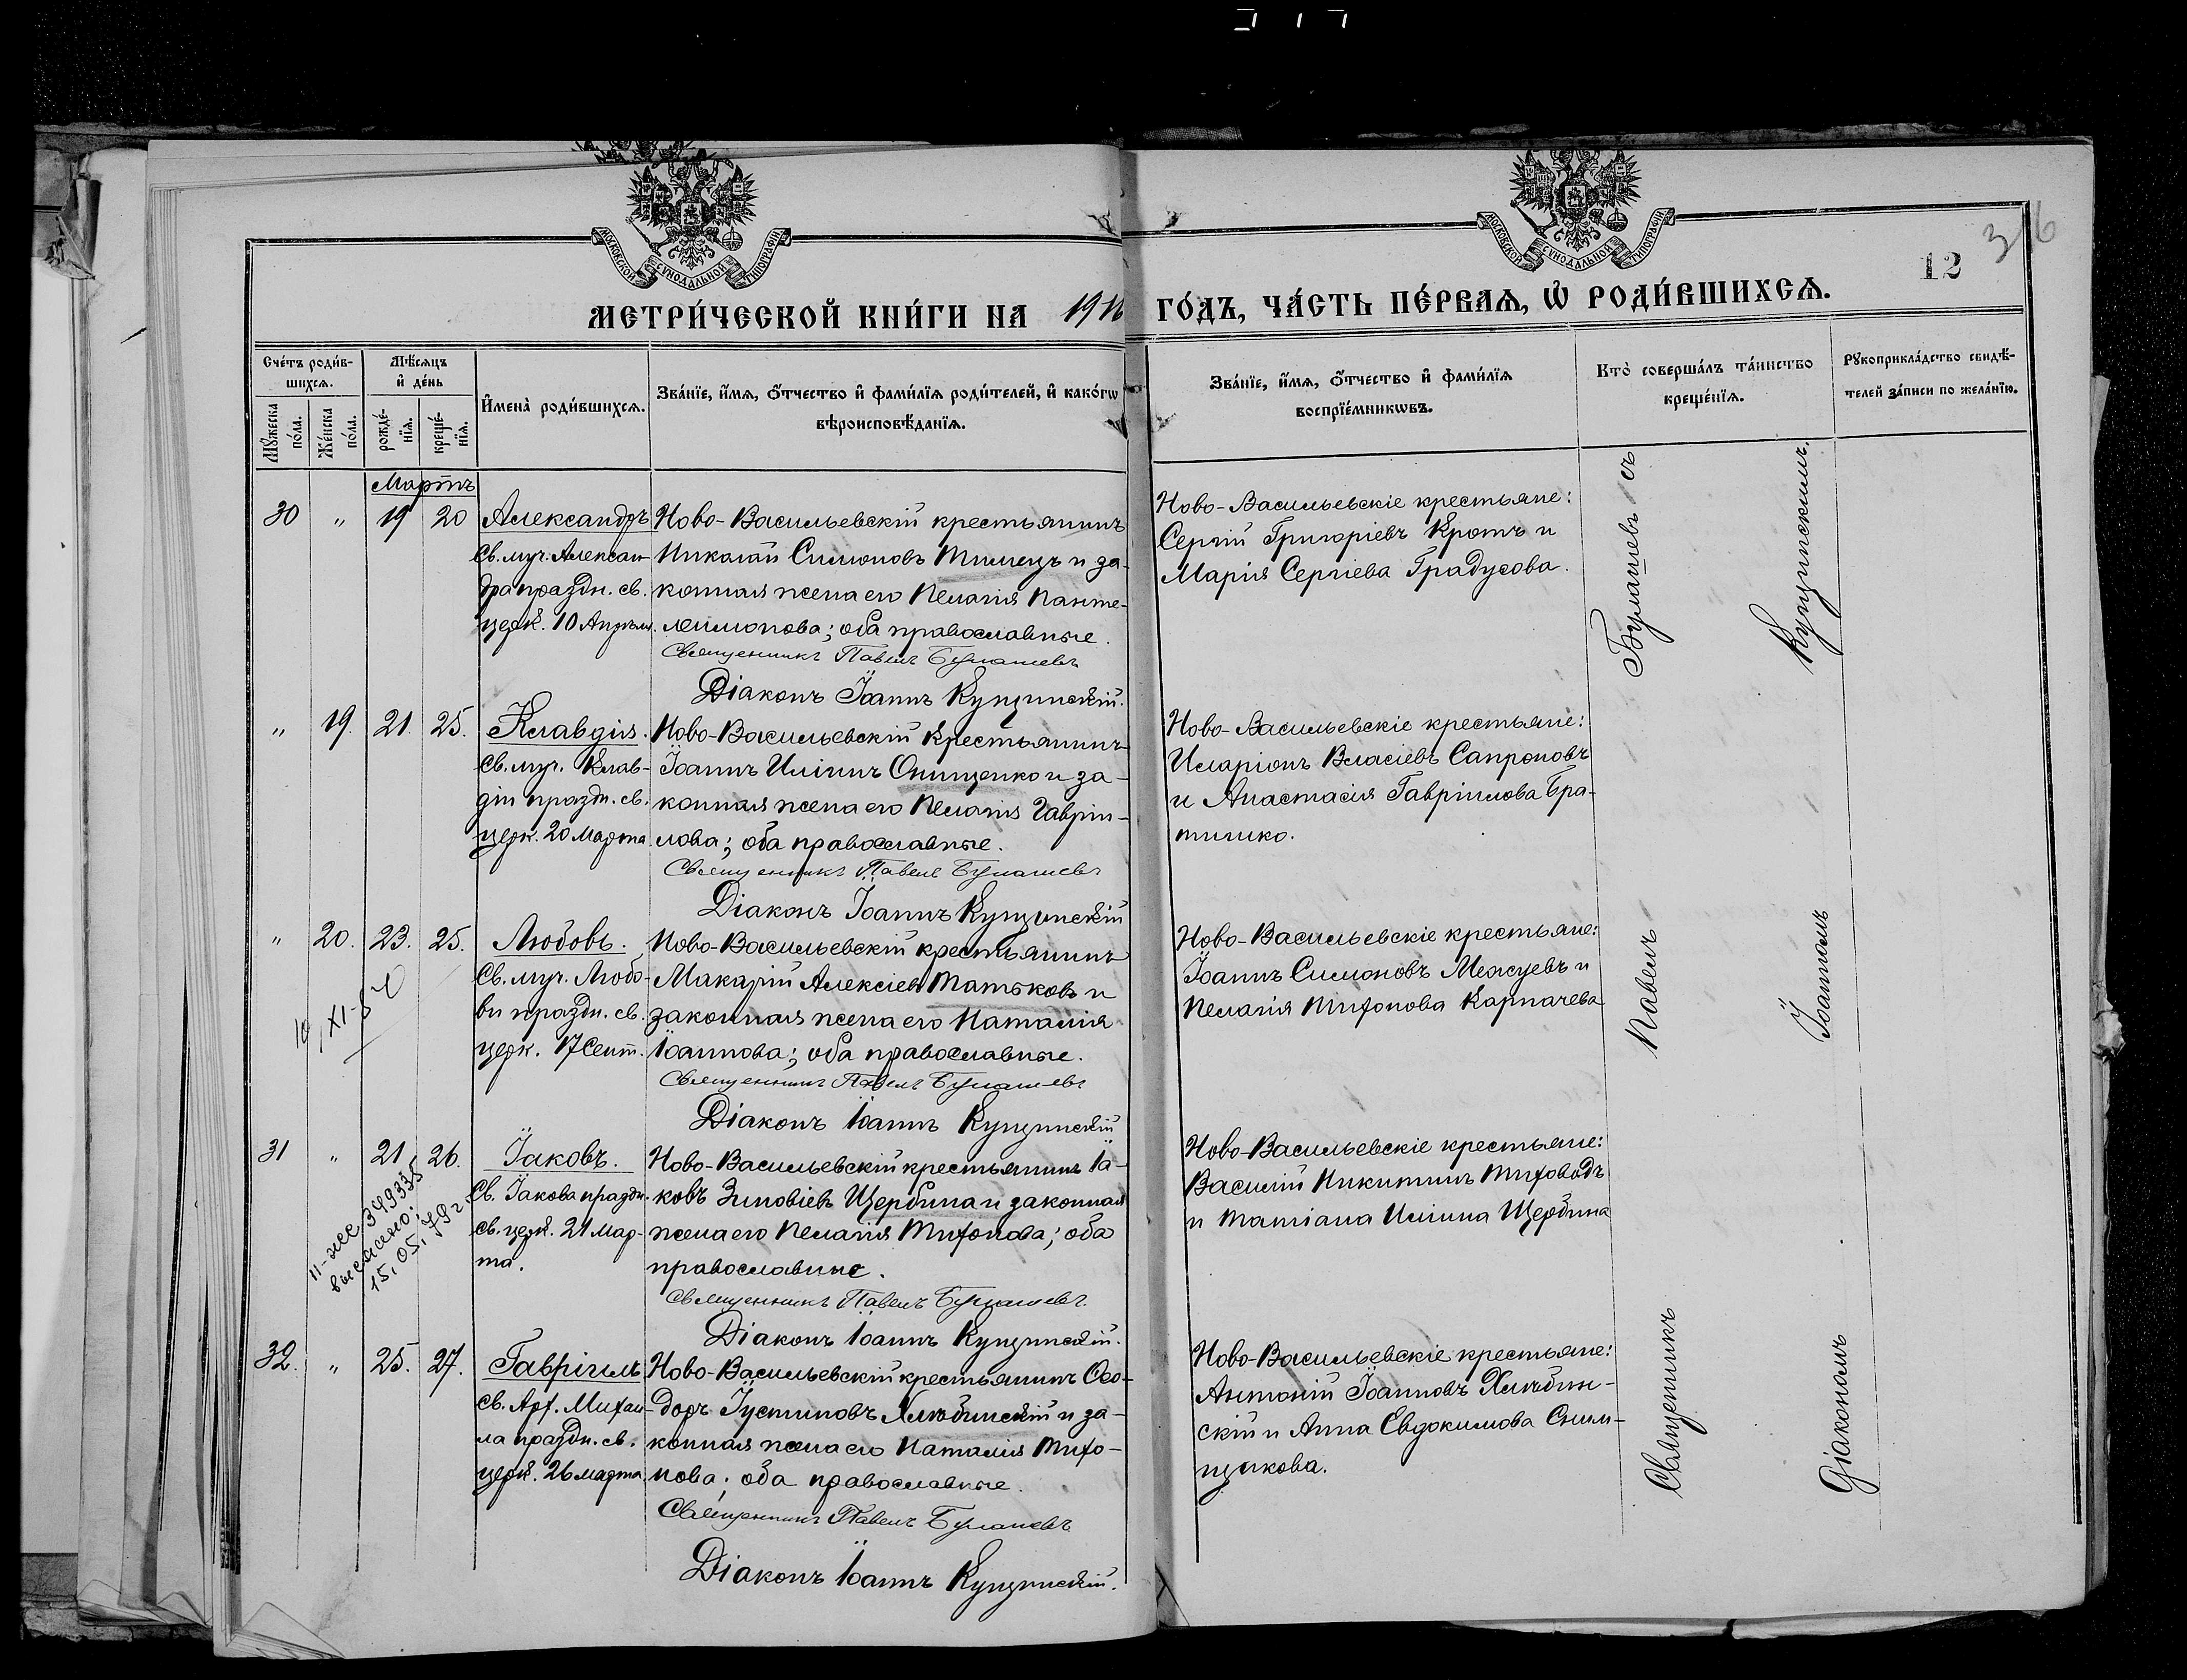 МОСКОВСКОЙ СѴНОДАЛЬНОЙ ТИПОГРАФІИ
МОСКОВСКОЙ СѴНОДАЛЬНОЙ ТИПОГРАФІИ
12
36
МЕТРИ́ЧЕСКОЙ КНИ́ГИ НА 1916 ГО́ДЪ, ЧА́СТЬ ПЕ́РВАѦ, Ѡ҆ РОДИ́ВШИХСѦ.
Сче́тъ роди́в-
шихсѧ.
Мꙋ́жеска по́ла.
Же́нска по́ла.
Мѣ́сѧцъ
и҆ де́нь
рожде́-
нїѧ.
креще́-
нїѧ.
И҆мена̀ роди́вшихсѧ.
Зва́нїе, и҆́мѧ, ѻ҆́тчество и҆ фами́лїѧ роди́телей, и҆ како́гѡ
вѣроисповѣ́данїѧ.
Зва́нїе, и҆́мѧ, ѻ҆́тчество и҆ фами́лїѧ
воспрїе́мникѡвъ.
Кто̀ соверша́лъ та́инство
креще́нїѧ.
Рꙋкоприкла́дство свидѣ́-
телей за́писи по жела́нїю.
Мартъ
30 " 19 20 Александръ
Св. муч. Алексан-
дра праздн. св.
церк. 10 Апрѣля.
Ново-Васильевскій крестьянинъ
Николай Симоновъ Тимецъ и за-
конная жена его Пелагія Панте-
леимонова; оба православные.
Священникъ Павелъ Булашевъ
Діаконъ Іоаннъ Купчинскій.
Ново-Васильевскіе крестьяне:
Сергій Григоріевъ Кротъ и
Марія Сергіева Градусова.
" 19. 21. 25. Клавдія.
Св. муч. Клав-
діи праздн. св.
церк. 20 Марта.
Ново-Васильевскій крестьянинъ
Іоаннъ Иліинъ Онищенко и за-
конная жена его Пелагія Гаврі-
лова; оба православные.
Священникъ Павелъ Булашевъ
Діаконъ Іоаннъ Купчинскій
Ново-Васильевскіе крестьяне:
Иларіонъ Власіевъ Сапроновъ
и Анастасія Гавріилова Бра-
тишко.
" 20. 23. 25. Любовь.
Св. муч. Любо-
ви праздн. св.
церк. 17 Сент.
Ново-Васильевскій крестьянинъ
Макарій Алексіевъ Татьковъ и
законная жена его Наталія
Іоаннова; оба православные.
Священникъ Павелъ Булашевъ
Діаконъ Іоаннъ Купчинскій
Ново-Васильевскіе крестьяне:
Іоаннъ Симоновъ Межуевъ и
Пелагія Тихонова Карпачева
31 " 21. 26. Іаковъ.
Св. Іакова праздн.
св. церк. 21 Мар-
та.
II-ЖС 349335
выслано:
15.05.79г
Ново-Васильевскій крестьянинъ Іа-
ковъ Зиновіевъ Щербина и законная
жена его Пелагія Тихонова; оба
православные.
Священникъ Павелъ Булашевъ.
Діаконъ Іоаннъ Купчинскій.
Ново-Васильевскіе крестьяне:
Василій Никитинъ Тиховодъ
и Татіана Иліина Щербина
32. " 25. 27. Гавріилъ
Св. Арх. Михаи-
ла праздн. св.
церк. 26 марта.
Ново-Васильевскій крестьянинъ Ѳео-
доръ Іустиновъ Хлѣбинскій и за-
конная жена его Наталія Тихо-
нова; оба православные.
Священникъ Павелъ Булашевъ
Діаконъ Іоаннъ Купчинскій.
Ново-Васильевскіе крестьяне:
Антоній Іоанновъ Хлѣбин-
скій и Анна Евдокимова Сним-
щикова.
Священникъ Павелъ Булашевъ съ
Діакономъ Іоанномъ Купчинскимъ.